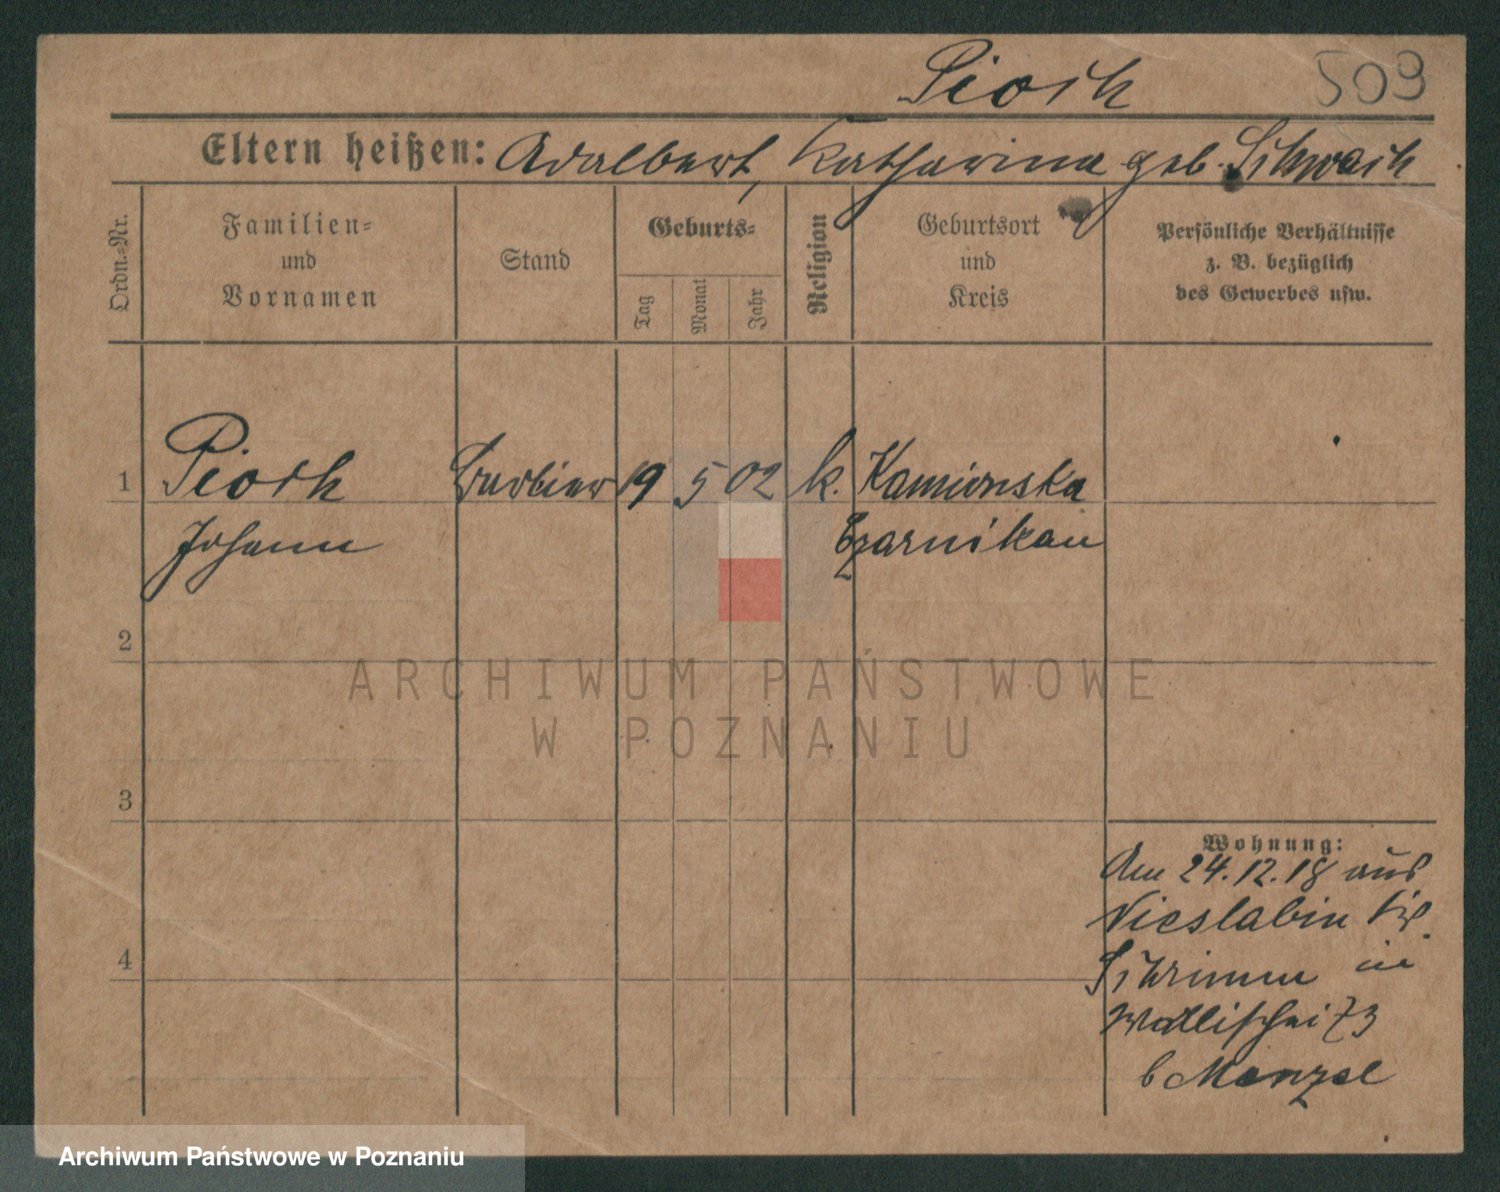 Pioch 509
Eltern heißen: Adalbert, Katharina geb.
Ordn.-Nr.
Familien- und Vornamen
Stand
Geburts-
Tag
Monat
Jahr
Religion
Geburtsort und Kreis
Persönliche Verhältnisse z. B. bezüglich des Gewerbes usw.
1 Pioch Barbier 19 5 02 k. Kamionska
Johann Czarnikau
2
ARCHIWUM PAŃSTWOWE
W POZNANIU
3
Wohnung:
Am 24.12.18 aus
Nieslabin
4
Schrimm in
Wallischei 73
b Menzel
Archiwum Państwowe w Poznaniu